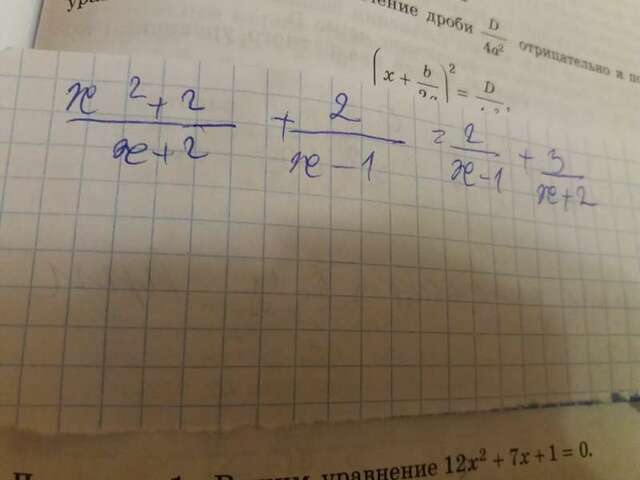 ение дроби D/4a² отрицательно и по
(x + b/2a)² = D
(x² + 2)/(x + 2) + 2/(x − 1) = 2/(x − 1) + 3/(x + 2)
уравнение 12x² + 7x + 1 = 0.